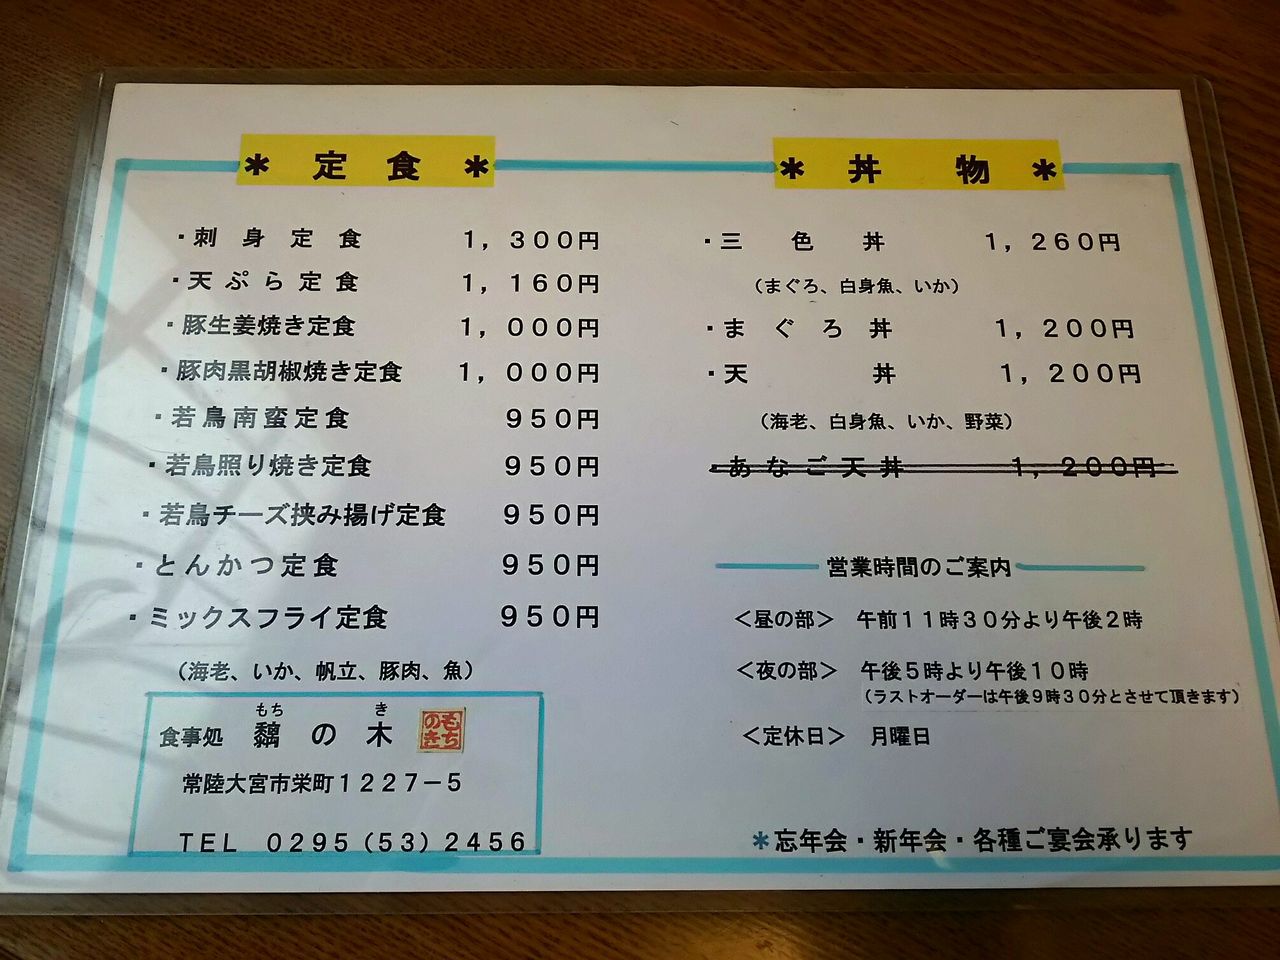 ＊ 定 食 ＊
・刺 身 定 食 1，300円
・天 ぷ ら 定 食 1，160円
・豚生姜焼き定食 1，000円
・豚肉黒胡椒焼き定食 1，000円
・若鳥南蛮定食 950円
・若鳥照り焼き定食 950円
・若鳥チーズ挟み揚げ定食 950円
・とんかつ定食 950円
・ミックスフライ定食 950円
（海老、いか、帆立、豚肉、魚）
もち き
食事処 黐 の 木
もち
のき
常陸大宮市栄町1227－5
TEL 0295（53）2456
＊ 丼 物 ＊
・三 色 丼 1，260円
（まぐろ、白身魚、いか）
・ま ぐ ろ 丼 1，200円
・天 丼 1，200円
（海老、白身魚、いか、野菜）
・あ な ご 天 丼 1，200円
営業時間のご案内
＜昼の部＞ 午前11時30分より午後2時
＜夜の部＞ 午後5時より午後10時
（ラストオーダーは午後9時30分とさせて頂きます）
＜定休日＞ 月曜日
＊忘年会・新年会・各種ご宴会承ります